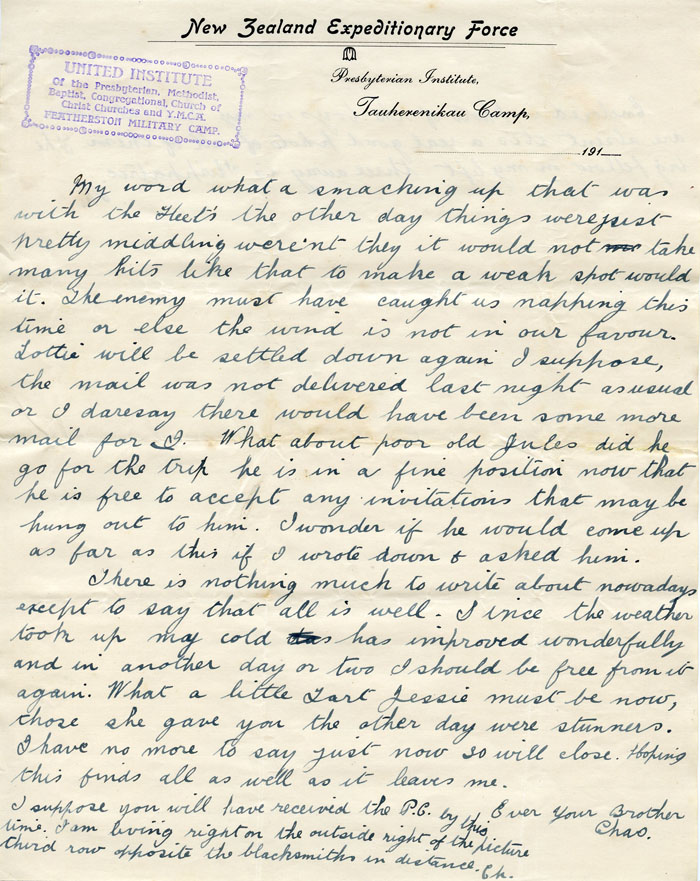 New Zealand Expeditionary Force
Presbyterian Institute,
Tauherenikau Camp,
191
UNITED INSTITUTE
Of the Presbyterian, Methodist,
Baptist, Congregational, Church of
Christ Churches and Y.M.C.A.
FEATHERSTON MILITARY CAMP.
My word what a smacking up that was
with the Fleet's the other day things were just
pretty middling were'nt they it would not take
many hits like that to make a weak spot would
it. The enemy must have caught us napping this
time or else the wind is not in our favour.
Lottie will be settled down again I suppose,
the mail was not delivered last night as usual
or I daresay there would have been some more
mail for I. What about poor old Jules did he
go for the trip he is in a fine position now that
he is free to accept any invitations that may be
hung out to him. I wonder if he would come up
as far as this if I wrote down & asked him.
There is nothing much to write about nowadays
except to say that all is well. Since the weather
took up may cold has improved wonderfully
and in another day or two I should be free from it
again. What a little Tart Jessie must be now,
those she gave you the other day were stunners.
I have no more to say just now so will close. Hoping
this finds all as well as it leaves me.
Ever Your Brother
Chas.
I suppose you will have received the P.C. by this
time. I am living right on the outside right of the picture
third row opposite the blacksmiths in distance. Ch.